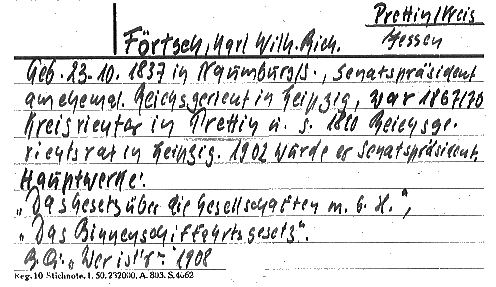 Prettin/Kreis
Jessen
Förtsch, Karl Wilh. Rich.
Geb. 23.10.1837 in Naumburg/S., Senatspräsident
am ehemal. Reichsgericht in Leipzig, war 1867/70
Kreisrichter in Prettin u. s. 1880 Reichsge-
richtsrat in Leipzig. 1902 wurde er Senatspräsident.
Hauptwerke:
„Das Gesetz über die Gesellschaften m. b. H.",
„Das Binnenschiffahrtsgesetz".
B.Qu. „Wer ist's" 1908
Reg. 10 Stichnote. I. 50. 232000. A. 803. S. 4662